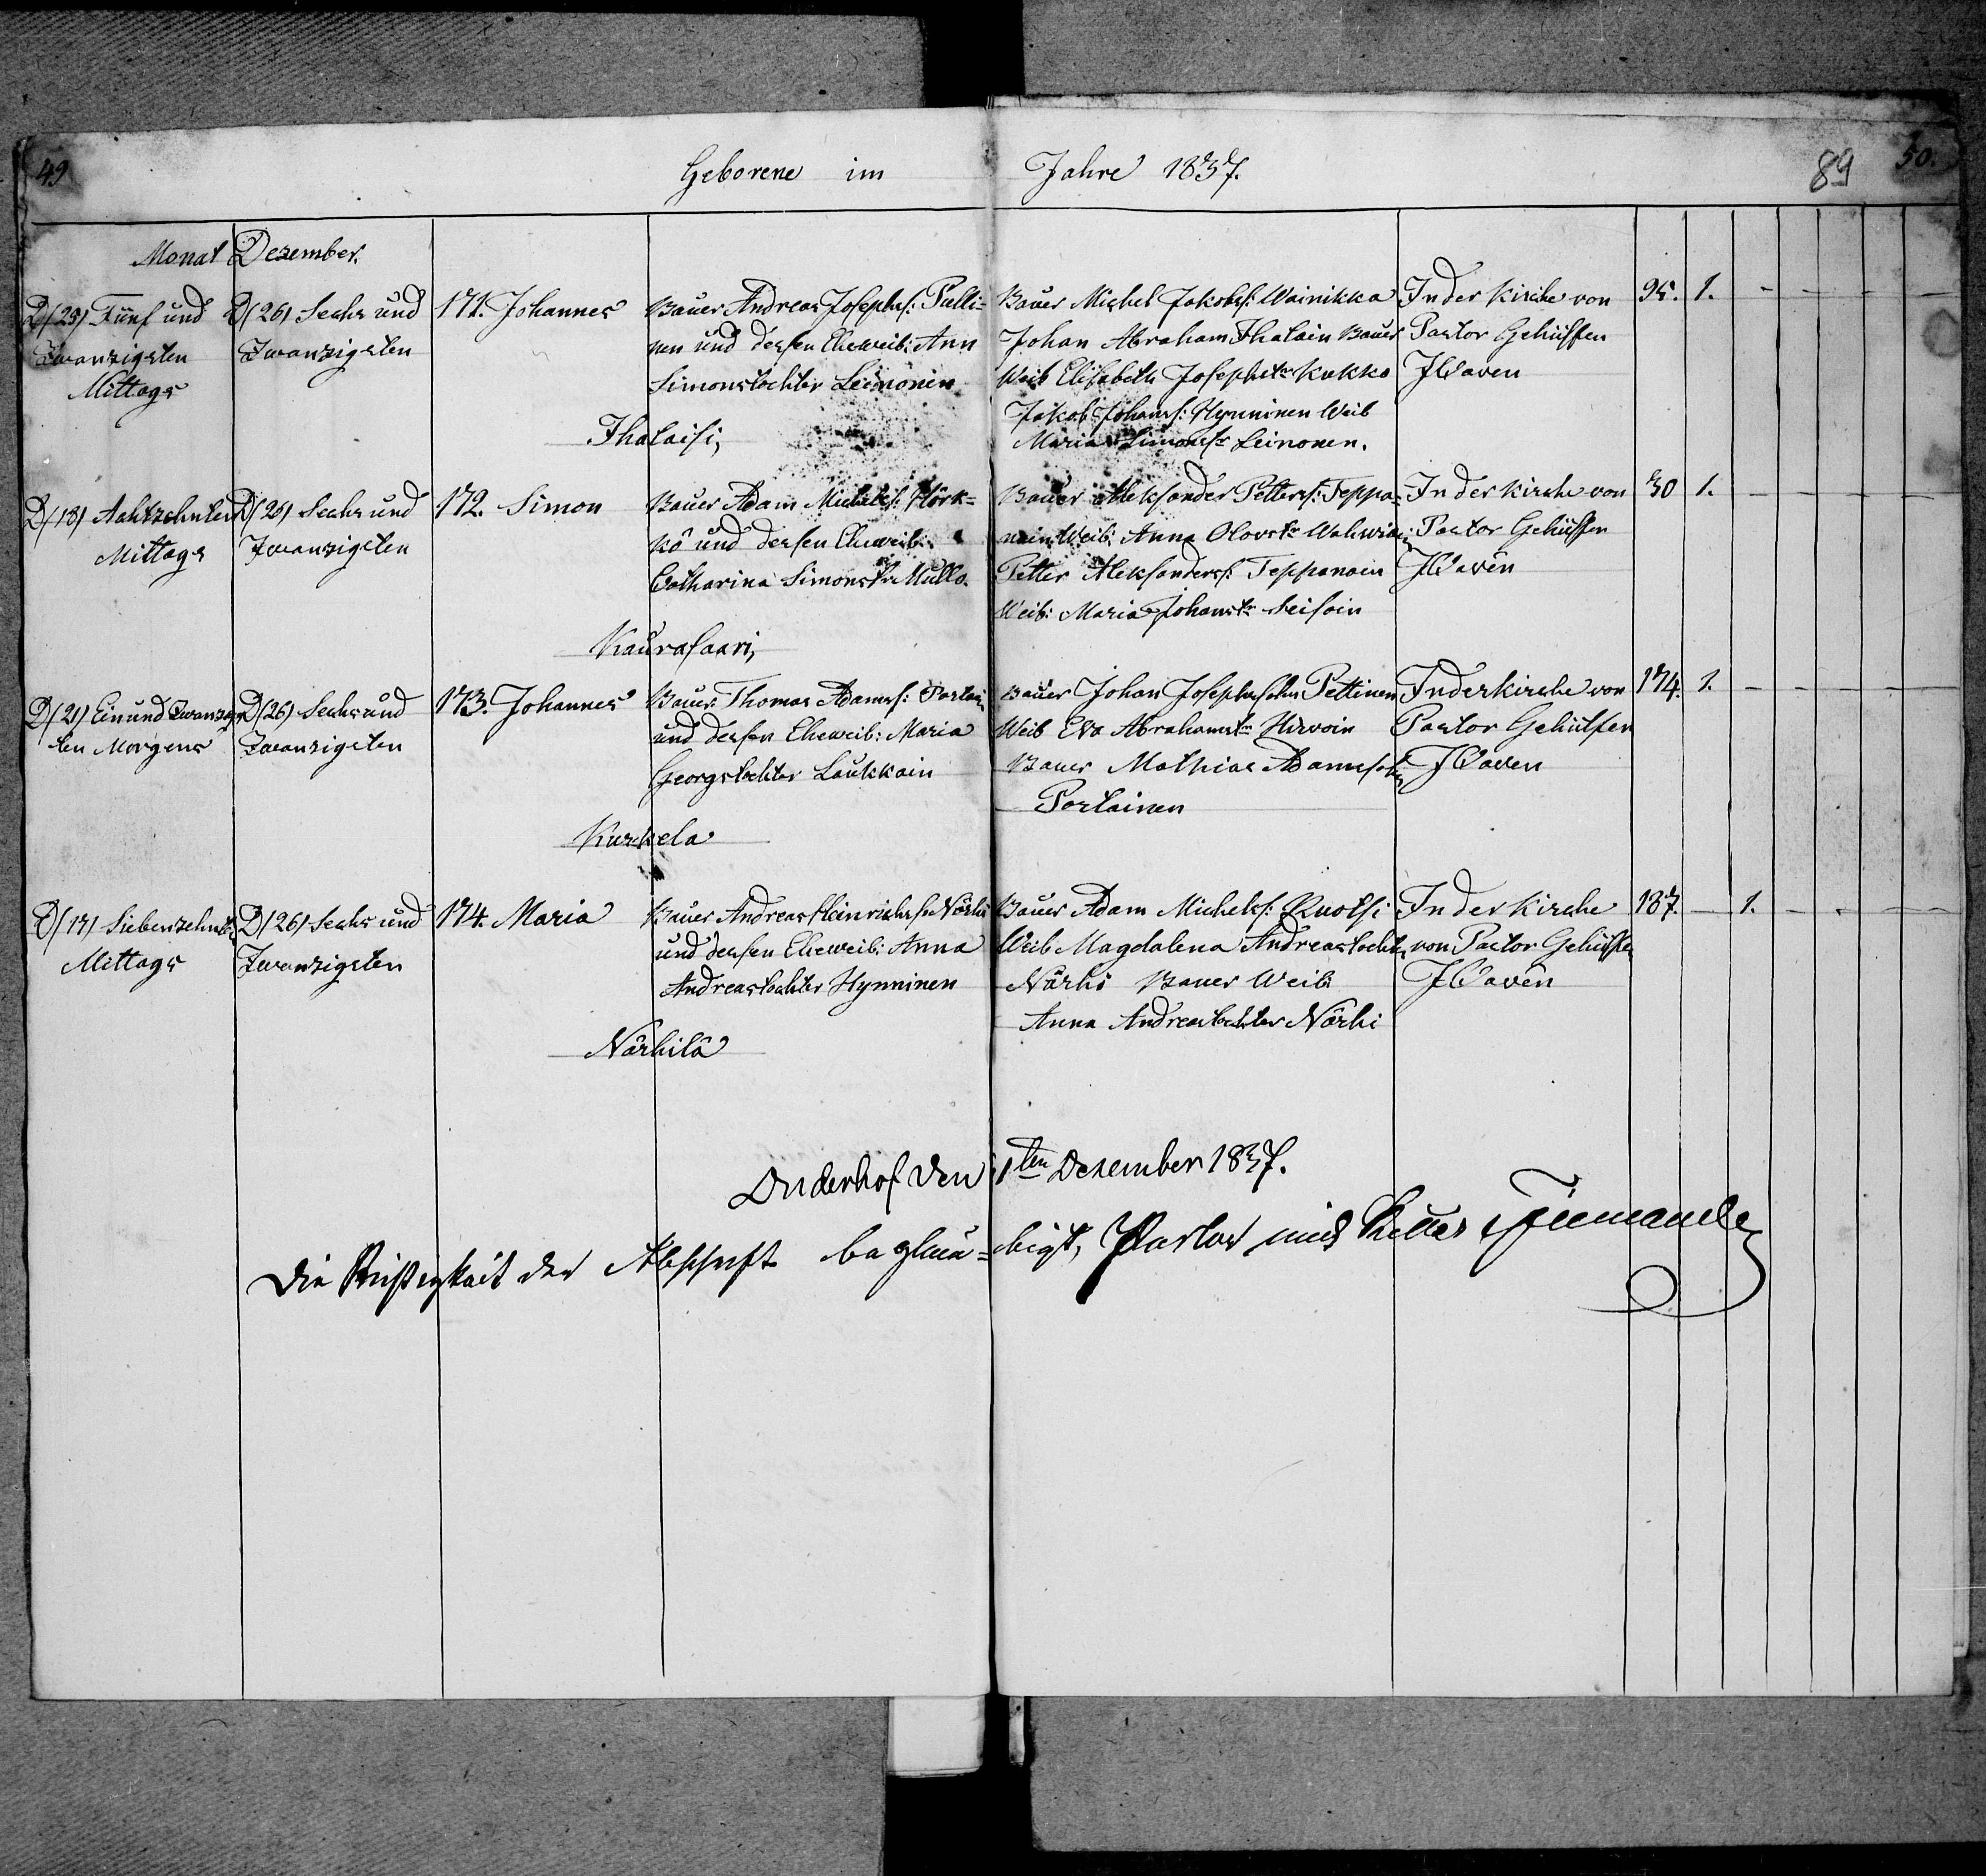 49
Geborene im Jahre 1837.
89 50.
Monat Dezember.
D/(25) Fünf und Zwanzigsten Mittags
D/(26) Sechs und Zwanzigsten
171. Johannes
Bauer Andreas Josephs: Pulli=
nen und dessen Eheweib: Ann
Simonstochter Leinonen
Bauer Michel Jakobs: Wainikka
Johan Abraham Ihalain Bauer
Weib Elisabeth Josephstr Kukko
Jakob Johans: Hynninen Weib
Maria Simonstr Leinonen.
In der Kirche von
Pastor Gehülfen
95. 1. - - - - -
Ihalaisi,
D/(18) Achtzehnten
Mittags
D/(26) Sechs und
Zwanzigsten
172. Simon
Bauer Adam Michels: Hörk=
kö und dessen Eheweib:
Catharina Simonstr Mullo.
Bauer Aleksander Petters: Teppa-
nain Weib: Anna Olovstr
Petter Aleksanders: Teppanain
Weib: Maria Johanstr Seisoin
In der Kirche von
Pastor Gehülfen
30 1. - - - - -
Kaurasaari,
D/(21) Ein und Zwanzigs
ten Morgens
D/(26) Sechs und
Zwanzigsten
173. Johannes
Bauer Thomas Adams:
und dessen Eheweib: Maria
Georgstochter Laukkain
Bauer Johan Josephssohn Pettinen
Weib Eva Abrahamstr Hirvoin
Bauer Mathias Adamssohn
In der Kirche von
Pastor Gehülfen
174. 1. - - - - -
Kurkela
D/(17) Siebenzehnt
Mittags
D/(26) Sechs und
Zwanzigsten
174. Maria
Bauer Andreas Heinrichs: Närhi
und dessen Eheweib: Anna
Andreastochter Hynninen
Bauer Adam Michels: Ruotsi
Weib Magdalena Andreastochter
Närhi Bauer Weib:
Anna Andreastochter Närhi
In der Kirche
von Pastor Gehülfen
187. - 1. - - - -
Närhilä
den 1ten Dezember 1837.
Die Richtigkeit der Abschrift beglau=bigt, Pastor und Ritter